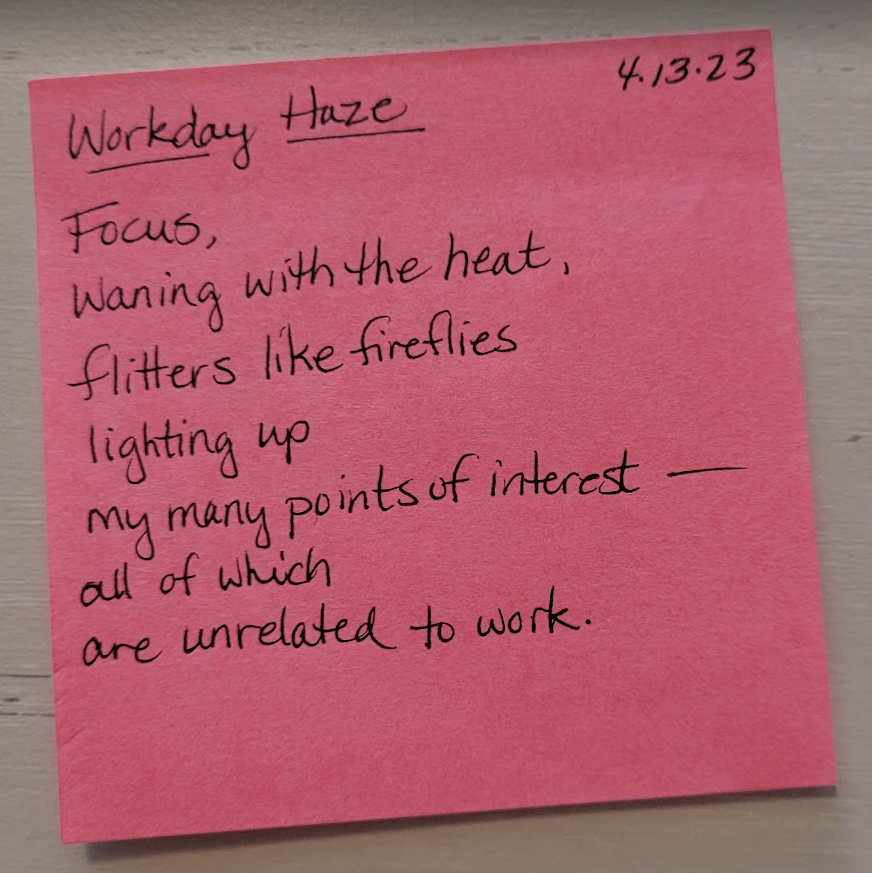 4.13.23
Workday Haze
Focus,
Waning with the heat,
flitters like fireflies
lighting up
my many points of interest —
all of which
are unrelated to work.